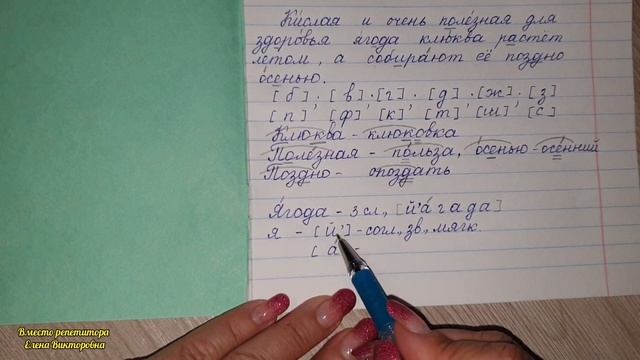 Ки́слая и очень поле́зная для
здоро́вья я́года клю́ква растёт
ле́том, а собира́ют её поздно
о́сенью.
[б], [в], [г], [д], [ж], [з]
[п] [ф] [к] [т] [ш] [с]
Клюква - клюковка
Поле́зная - по́льза, о́сенью - осе́нний
Поздно - опоздать
Я́года - 3 сл., [й'а́гада]
я - [й'] - согл., зв., мягк.
[а́
Вместо репетитора
Елена Викторовна